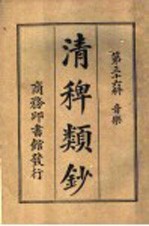 第三十六冊 音樂
清稗類鈔
商務印書館發行